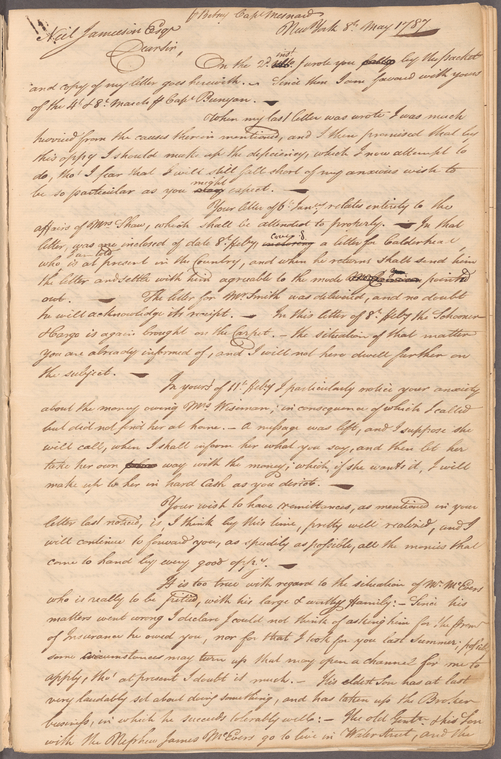 Neil Jamieson Esqr
New York 8th May 1787
Dear Sir,
On the 2d inst I wrote you by the packet
and copy of my letter goes herewith. – Since then I am favored with yours
of the 4th & 8th March p Capt Bunyan. –
When my last letter was wrote I was much
hurried from the causes therein mentioned, and I then promised that by
this oppy I should make up the deficiency, which I now attempt to
do, tho' I fear that I will still fall short of my anxious wish to
be so particular as you might expect. –
Your letter of 6th Jany relates entirely to the
affairs of Mrs Shaw, which shall be attended to properly. – In that
letter, was one inclosed of date 8th feby, a letter for Calderhead
who is at present in the Country, and when he returns shall send him
the letter and settle with him agreable to the mode pointed
out. – The letter for Mr Smith was delivered, and no doubt
he will acknowledge its receipt. – In this letter of 8th feby the Schooner
& Cargo is again brought on the Carpet. – the situation of that matter
you are already informed of, and I will not here dwell further on
the subject. –
In yours of 11th feby I particularly notice your anxiety
about the money owing Mrs Wiseman, in consequence of which I called
but did not find her at home. – A message was left, and I suppose she
will call, when I shall inform her what you say, and then let her
take her own way with the money; which, if she wants it, I will
make up to her in hard Cash as you desire. –
Your wish to have remittances, as mentioned in your
letter last noticed, is, I think by this time, pretty well realized, and I
will continue to forward you, as speedily as possible, all the monies that
come to hand by every good oppy. –
It is too true with regard to the situation of Mr McEvers
who is really to be pitied, with his large & worthy family: – Since his
matters went wrong I declare I could not think of asking him for the
of Insurance he owed you, nor for that I took for you last Summer;
some circumstances may turn up that may open a channel for me to
apply, tho' at present I doubt it much. – His eldest Son has at last
very laudably set about doing something, and has taken up the Broker
business, in which he succeeds tolerably well: – The old Gentn & his Son
with the Nephew James McEvers go to live in Water Street, and the